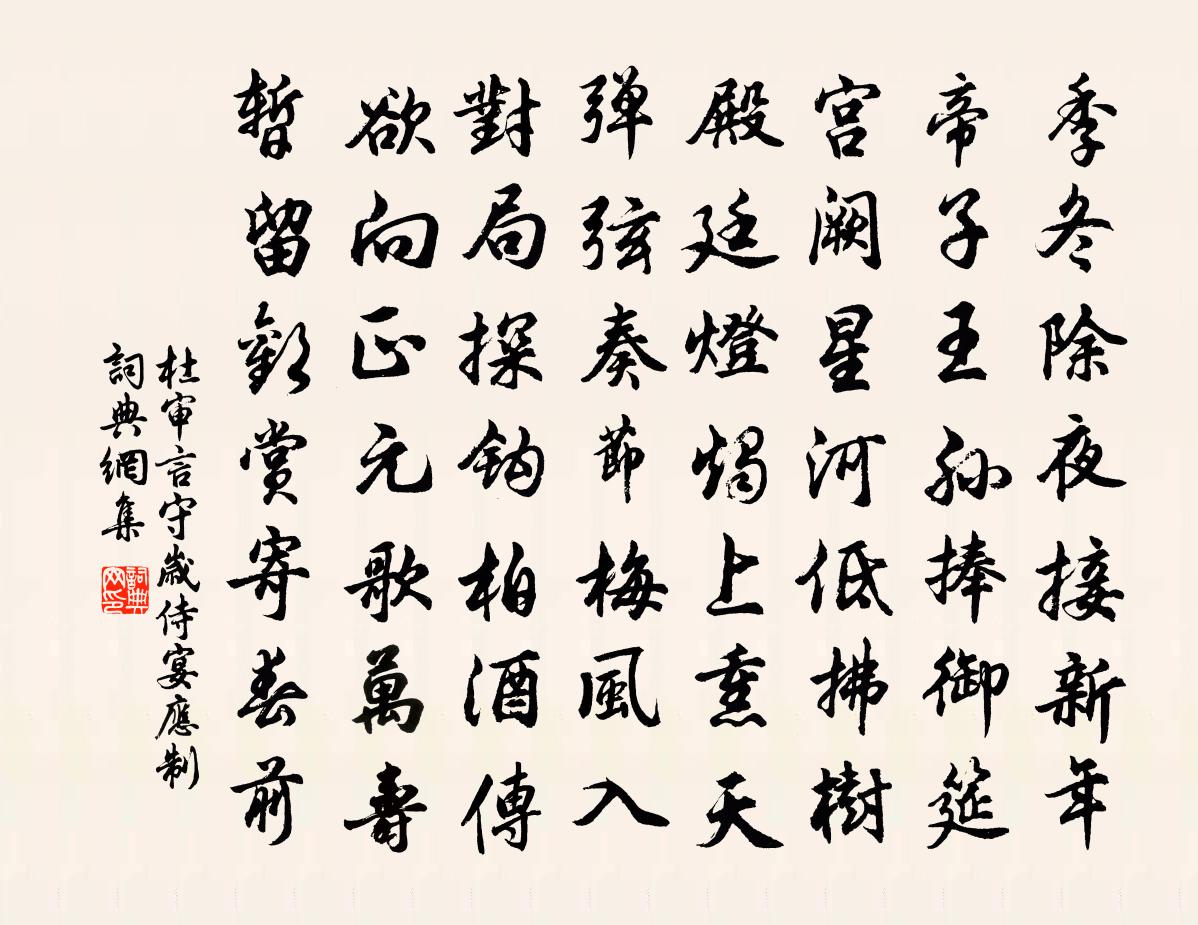 季冬除夜接新年
帝子王孫捧御筵
宮闕星河低拂樹
殿廷燈燭上熏天
弹弦奏節梅風入
對局探鈎柏酒傳
欲向正元歌萬壽
暫留歡賞寄春前
杜審言守歲侍宴應制
詞典網集
詞典网印